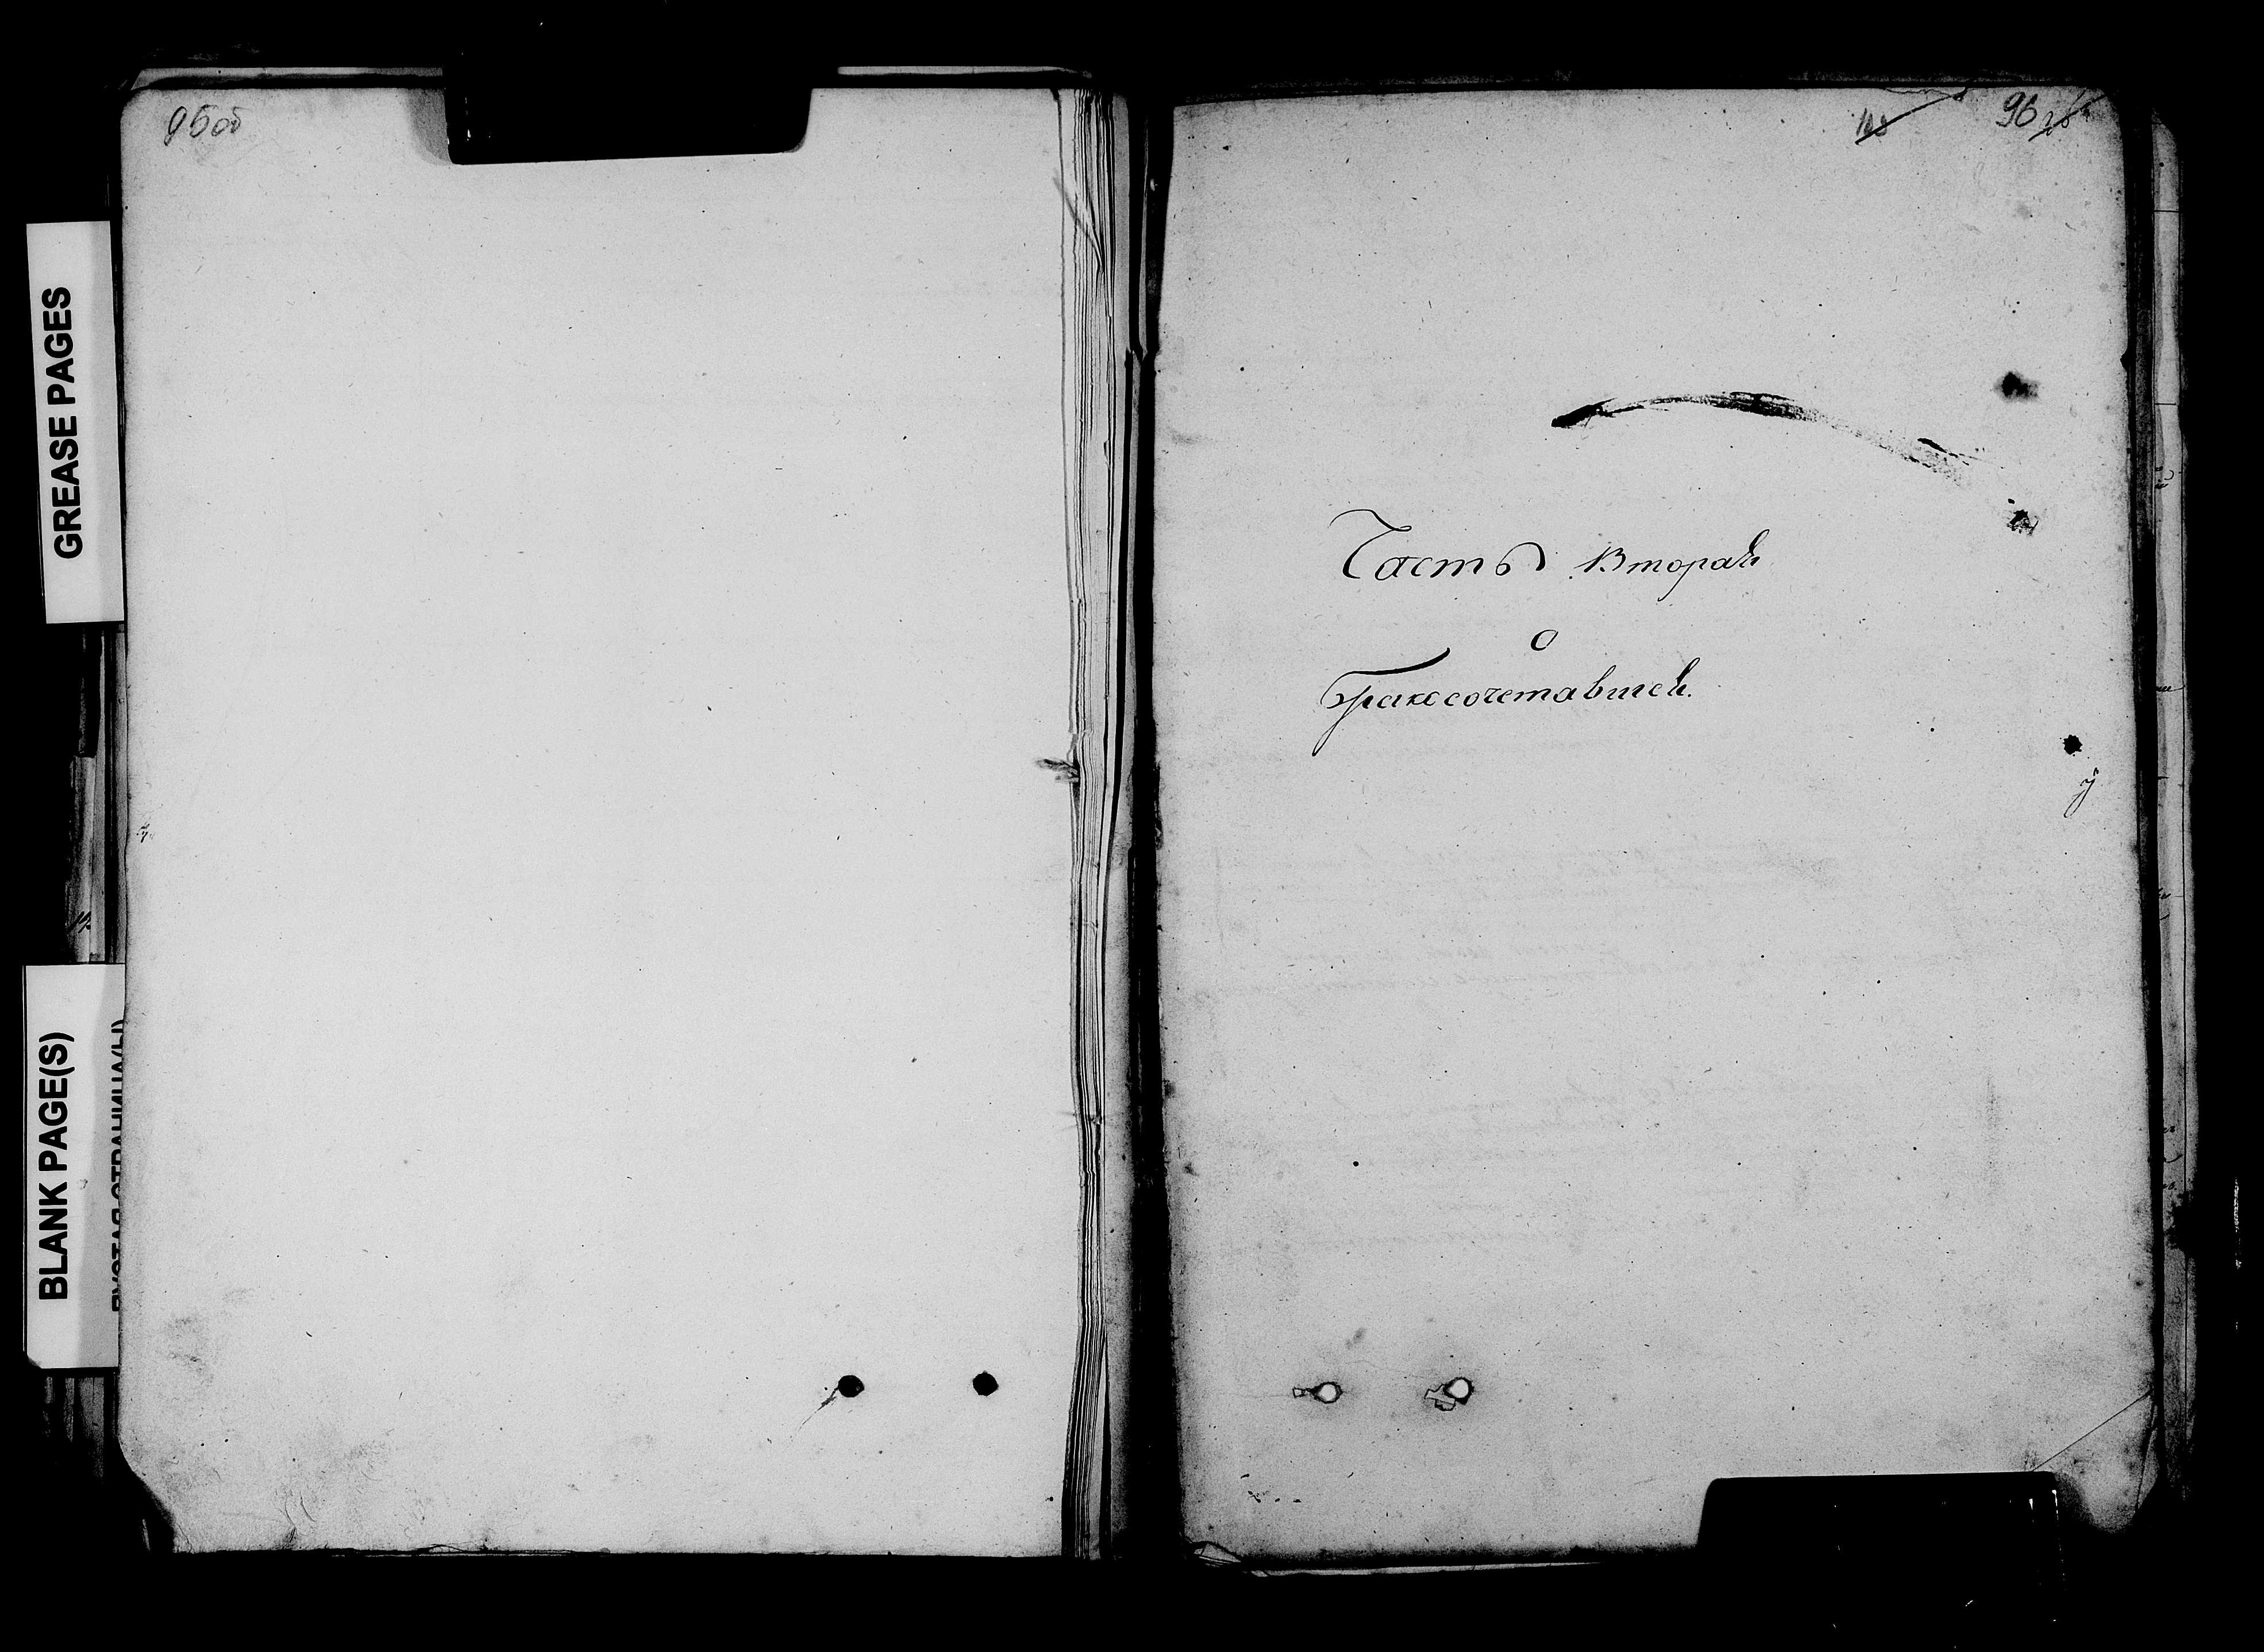 95об
GREASE PAGES
BLANK PAGE(S)
ПУСТАЯ СТРАНИЦА(Ы)
108
96
Часть Вторая
о
бракосочетавшся.